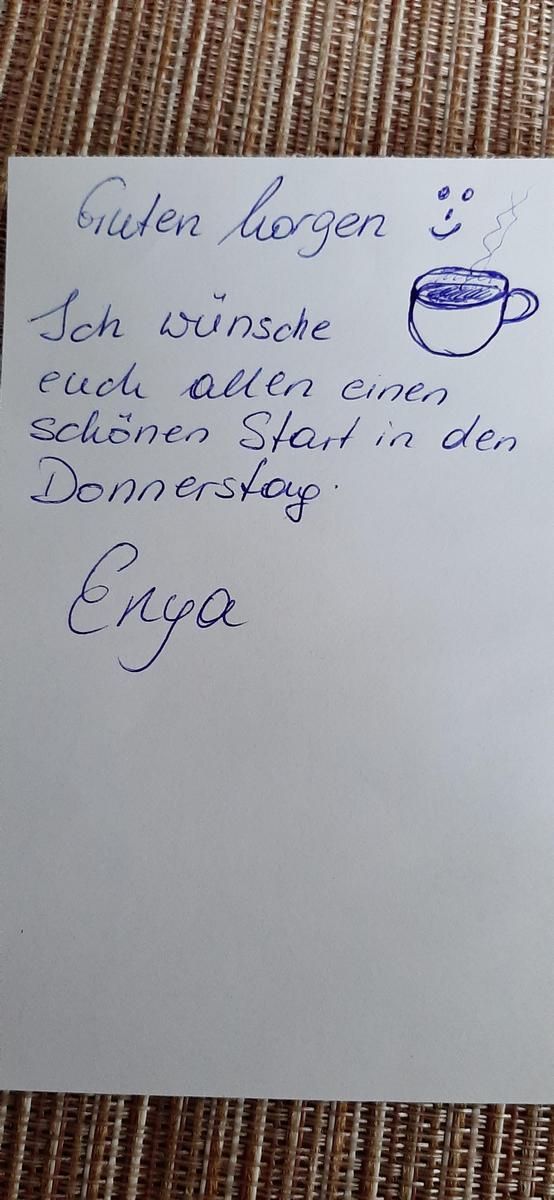 Guten Morgen
Ich wünsche
euch allen einen
schönen Start in den
Donnerstag.
Enya